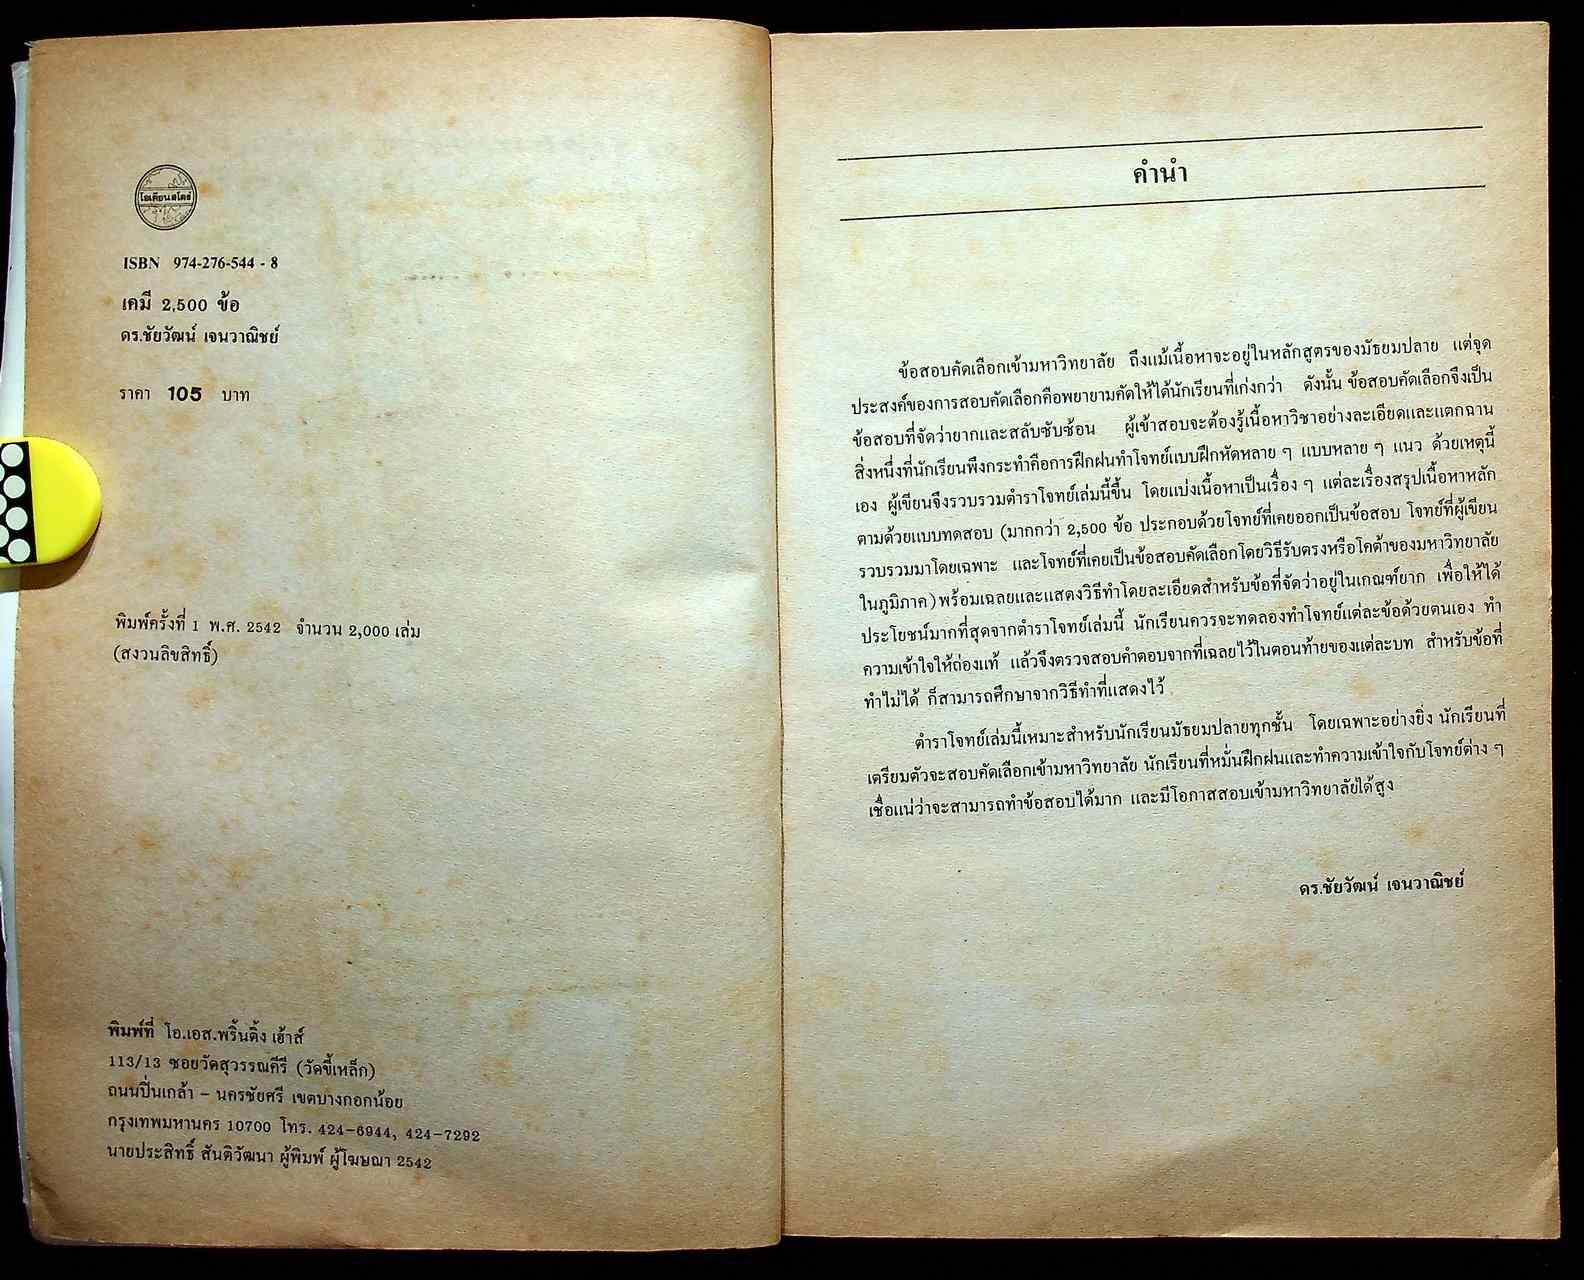 โอเดียนสโตร์
ISBN 974-276-544 - 8
เคมี 2,500 ข้อ
ดร.ชัยวัฒน์ เจนวาณิชย์
ราคา 105 บาท
พิมพ์ครั้งที่ 1 พ.ศ. 2542 จำนวน 2,000 เล่ม
(สงวนลิขสิทธิ์)
พิมพ์ที่ โอ.เอส.พริ้นติ้ง เฮ้าส์
113/13 ซอยวัดสุวรรณคีรี (วัดขี้เหล็ก)
ถนนปิ่นเกล้า – นครชัยศรี เขตบางกอกน้อย
กรุงเทพมหานคร 10700 โทร. 424-6944, 424-7292
นายประสิทธิ์ สันติวัฒนา ผู้พิมพ์ ผู้โฆษณา 2542
คำนำ
ข้อสอบคัดเลือกเข้ามหาวิทยาลัย ถึงแม้เนื้อหาจะอยู่ในหลักสูตรของมัธยมปลาย แต่จุด
ประสงค์ของการสอบคัดเลือกคือพยายามคัดให้ได้นักเรียนที่เก่งกว่า ดังนั้น ข้อสอบคัดเลือกจึงเป็น
ข้อสอบที่จัดว่ายากและสลับซับซ้อน ผู้เข้าสอบจะต้องรู้เนื้อหาวิชาอย่างละเอียดและแตกฉาน
สิ่งหนึ่งที่นักเรียนพึงกระทำคือการฝึกฝนทำโจทย์แบบฝึกหัดหลาย ๆ แบบหลาย ๆ แนว ด้วยเหตุนี้
เอง ผู้เขียนจึงรวบรวมตำราโจทย์เล่มนี้ขึ้น โดยแบ่งเนื้อหาเป็นเรื่อง ๆ แต่ละเรื่องสรุปเนื้อหาหลัก
ตามด้วยแบบทดสอบ (มากกว่า 2,500 ข้อ ประกอบด้วยโจทย์ที่เคยออกเป็นข้อสอบ โจทย์ที่ผู้เขียน
รวบรวมมาโดยเฉพาะ และโจทย์ที่เคยเป็นข้อสอบคัดเลือกโดยวิธีรับตรงหรือโคต้าของมหาวิทยาลัย
ในภูมิภาค) พร้อมเฉลยและแสดงวิธีทำโดยละเอียดสำหรับข้อที่จัดว่าอยู่ในเกณฑ์ยาก เพื่อให้ได้
ประโยชน์มากที่สุดจากตำราโจทย์เล่มนี้ นักเรียนควรจะทดลองทำโจทย์แต่ละข้อด้วยตนเอง ทำ
ความเข้าใจให้ถ่องแท้ แล้วจึงตรวจสอบคำตอบจากที่เฉลยไว้ในตอนท้ายของแต่ละบท สำหรับข้อที่
ทำไม่ได้ ก็สามารถศึกษาจากวิธีทำที่แสดงไว้
ตำราโจทย์เล่มนี้เหมาะสำหรับนักเรียนมัธยมปลายทุกชั้น โดยเฉพาะอย่างยิ่ง นักเรียนที่
เตรียมตัวจะสอบคัดเลือกเข้ามหาวิทยาลัย นักเรียนที่หมั่นฝึกฝนและทำความเข้าใจกับโจทย์ต่าง ๆ
เชื่อแน่ว่าจะสามารถทำข้อสอบได้มาก และมีโอกาสสอบเข้ามหาวิทยาลัยได้สูง
ดร.ชัยวัฒน์ เจนวาณิชย์